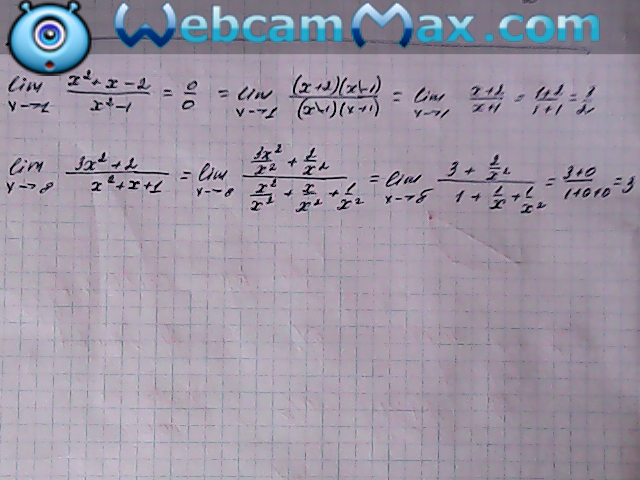 WebcamMax.com
lim x→1 (x²+x-2)/(x²-1) = 0/0 = lim x→1 ((x+2)(x-1))/((x-1)(x+1)) = lim x→1 (x+2)/(x+1) = (1+2)/(1+1) = 3/2
lim x→∞ (3x²+2)/(x²+x+1) = lim x→∞ (3x²/x² + 2/x²)/(x²/x² + x/x² + 1/x²) = lim x→∞ (3 + 2/x²)/(1 + 1/x + 1/x²) = (3+0)/(1+0+0) = 3